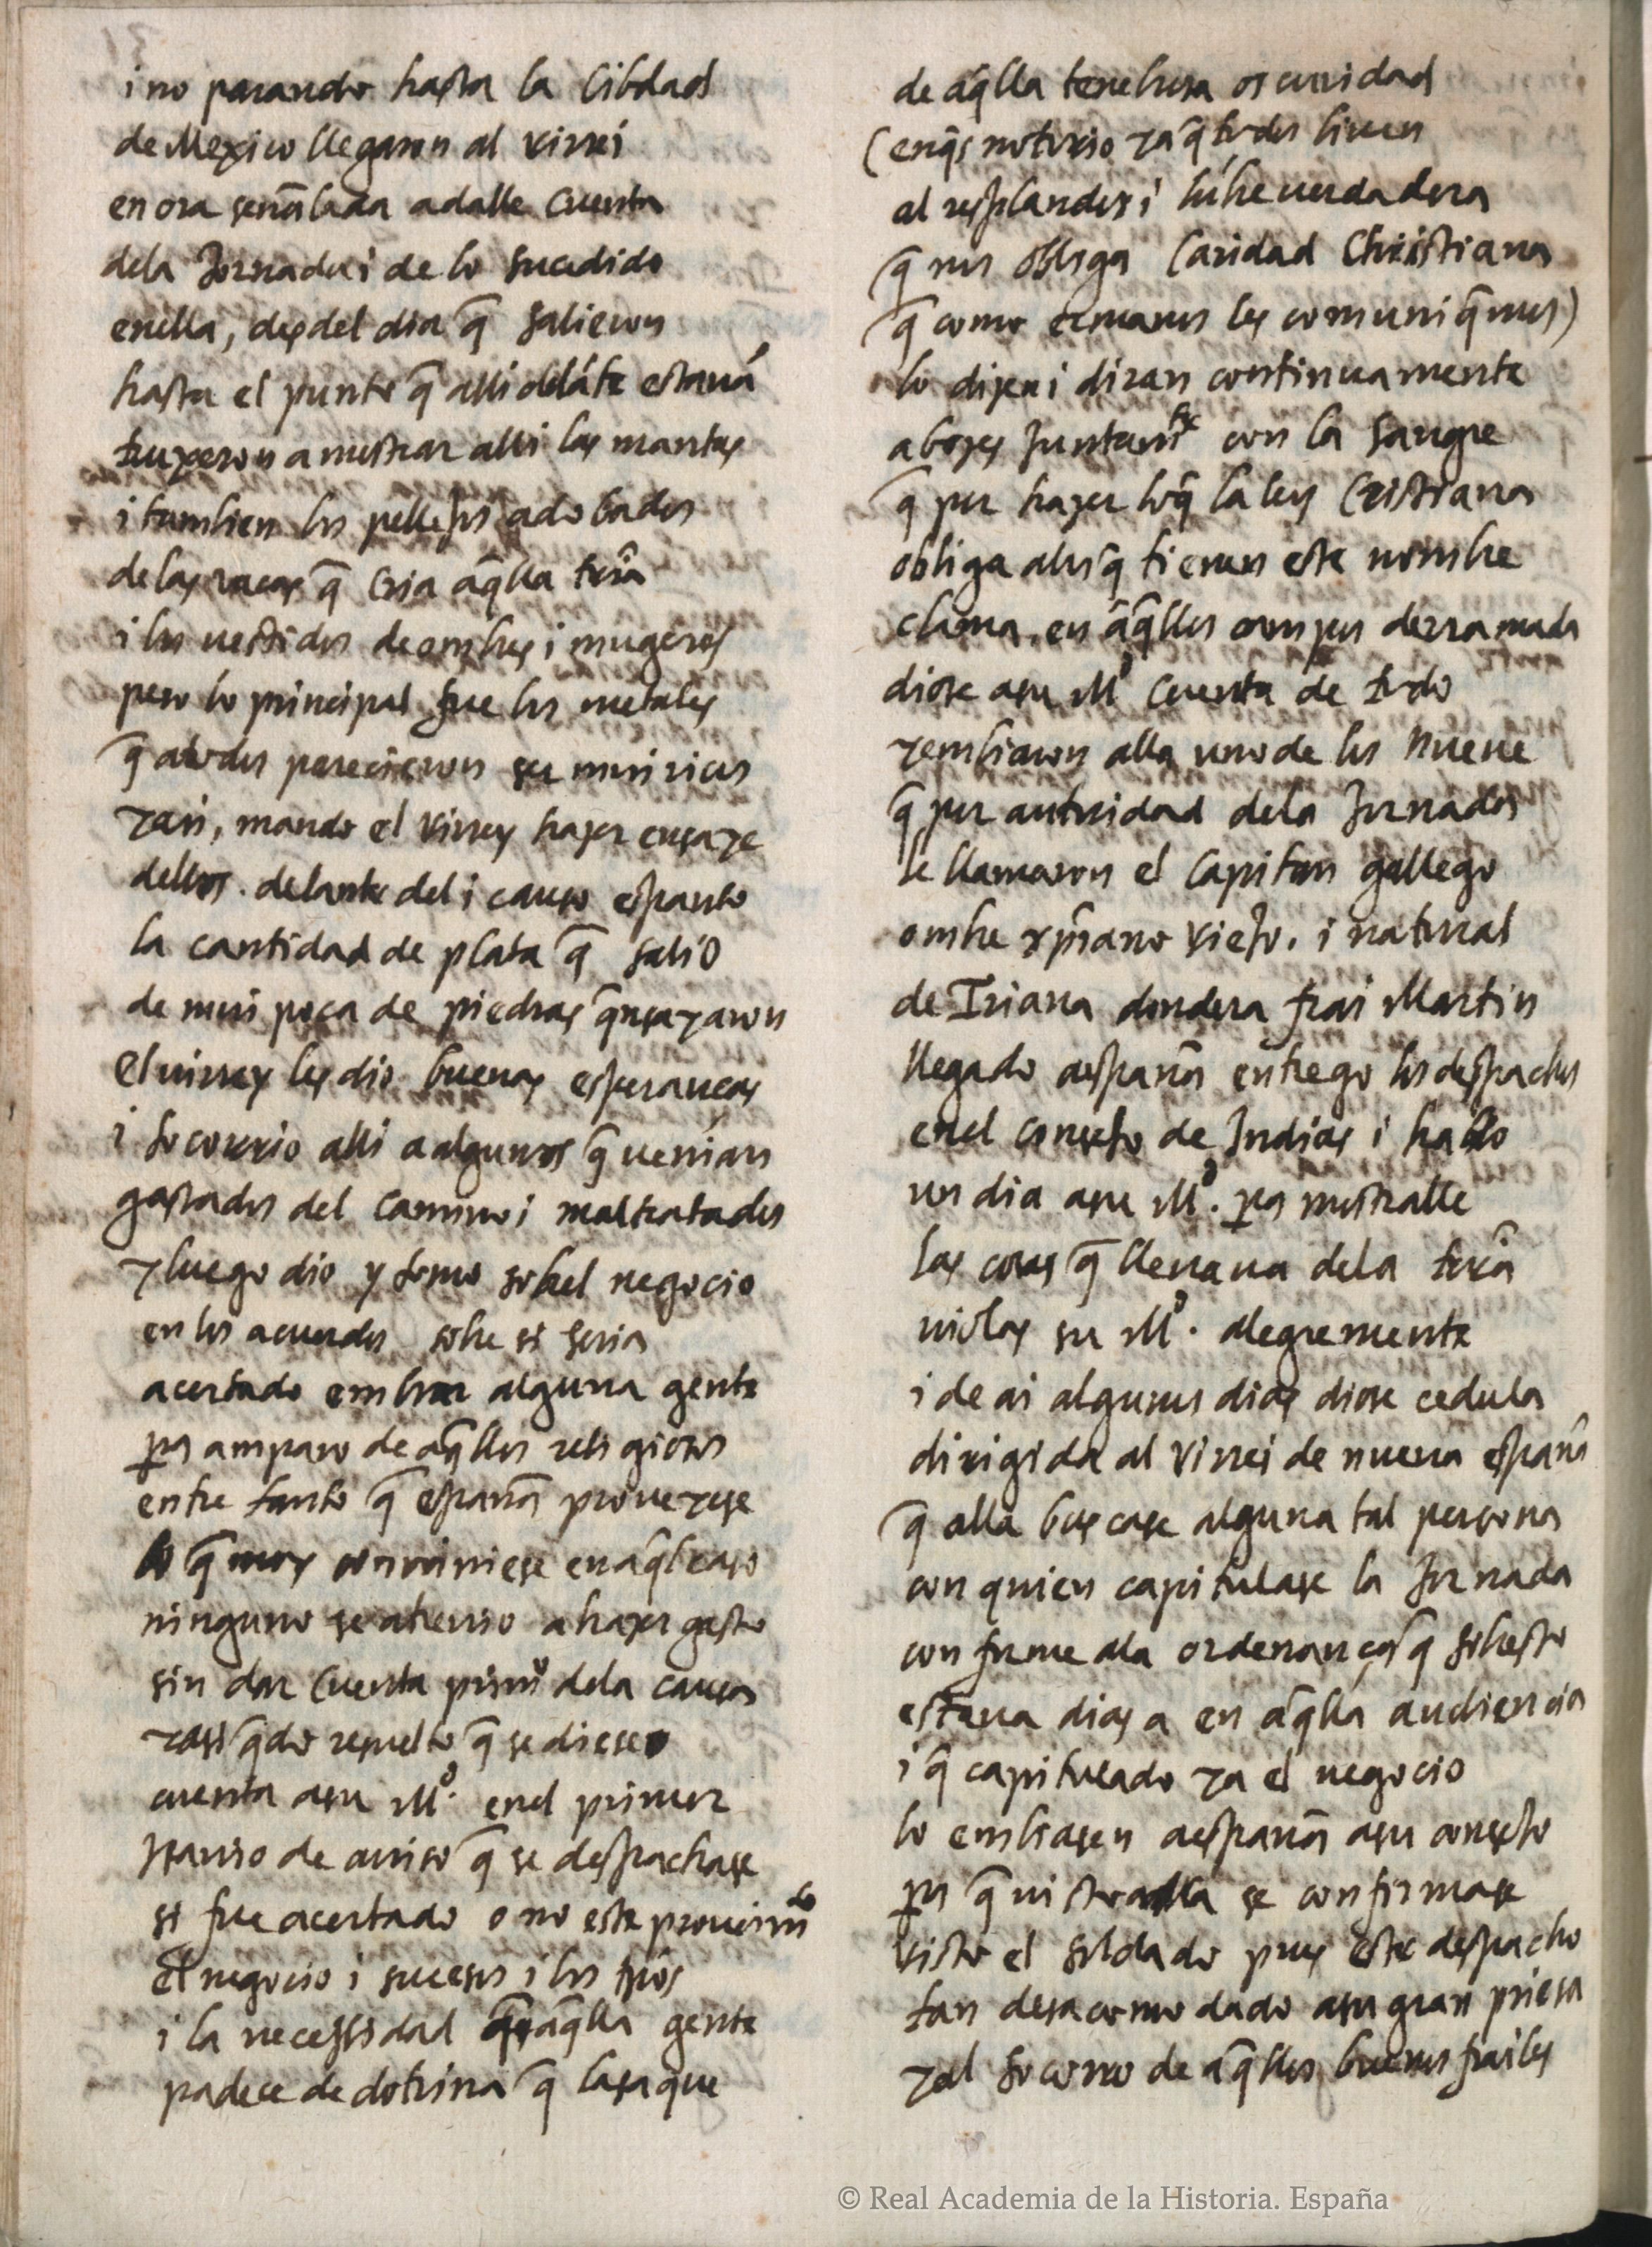 i no parando hasta la Cibdad
de Mexico llegaron al virrei
en ora señalada a dalle cuenta
dela Jornada i de lo sucedido
enella, desdel dia q̃ salieron
hasta el punto q̃ alli delãte estauã
truxeron a mostrar alli las mantas
i tambien los pellejos adobados
de las vacas q̃ cria aq̃lla trã
i los vestidos de ombres i mugeres
pero lo principal fue los metales
q̃ a todos parecieron ser mui ricos
y asi, mando el virrey hazer ensaye
dellos. delante del i causo espanto
la cantidad de plata q̃ salio
de mui poca de piedras q̃nsayaron
El virrey les dio buenas esperanças
i socorrio alli a algunos q̃ venian
gastados del camino i maltratados
y luego dio y tomo sobrel negocio
en los acuerdos sobre si seria
acertado embiar alguna gente
pa amparo de aq̃llos religiosos
entre tanto q̃ españa proueyese
lo q̃ mas conviniese en aq̃l caso
ninguno se atreuio a hazer gasto
sin dar cuenta primo dela causa
y asi q̃do resuelto q̃ se diese
cuenta a su Md. enel primer
nauio de auiso q̃ se despachase
si fue acertado o no este proueimto
El negocio i sucesos i los tpos
i la necessidad aq̃lla gente
padece de dotrina q̃ la saque
de aq̃lla tenebrosa oscuridad
(enq̃s notorio ya q̃ todos biuen
al resplandor i lũbre verdadera
q̃ nos obliga Caridad Christiana
q̃ como ermanos les comuniq̃mos)
lo dizen i diran continuamente
a bozes Juntamte con la sangre
q̃ por hazer loq̃ la ley Cristiana
obliga alos q̃ tienen este nombre
clama. en aq̃llos campos derramada
diose a su Md cuenta de todo
y embiaron alla uno de los nueue
q̃ por autoridad dela Jornada
le llamaron el Capitan gallego
ombre xpiano viejo. i natural
de Triana dondera frai Martin
llegado a españa entrego los despachos
enel consejo de Indias i hablo
un dia a su Md. pa mostralle
las cosas q̃ lleuaua dela trã
violas su Md. alegremente
i de ai algunos dias diose cedula
dirigida al Virrei de nueua españa
q̃ alla buscase alguna tal persona
con quien capitulase la Jornada
conforme ala ordenança q̃ sobresto
estaua dias a en aq̃lla audiencia
i q̃ capitulado ya el negocio
lo embiasen a españa a su consejo
pa q̃ vistoalla se confirmase
visto el soldado pues este despacho
tan desacomodado a su gran priesa
y al socorro de aq̃llos buenos frailes
© Real Academia de la Historia. España